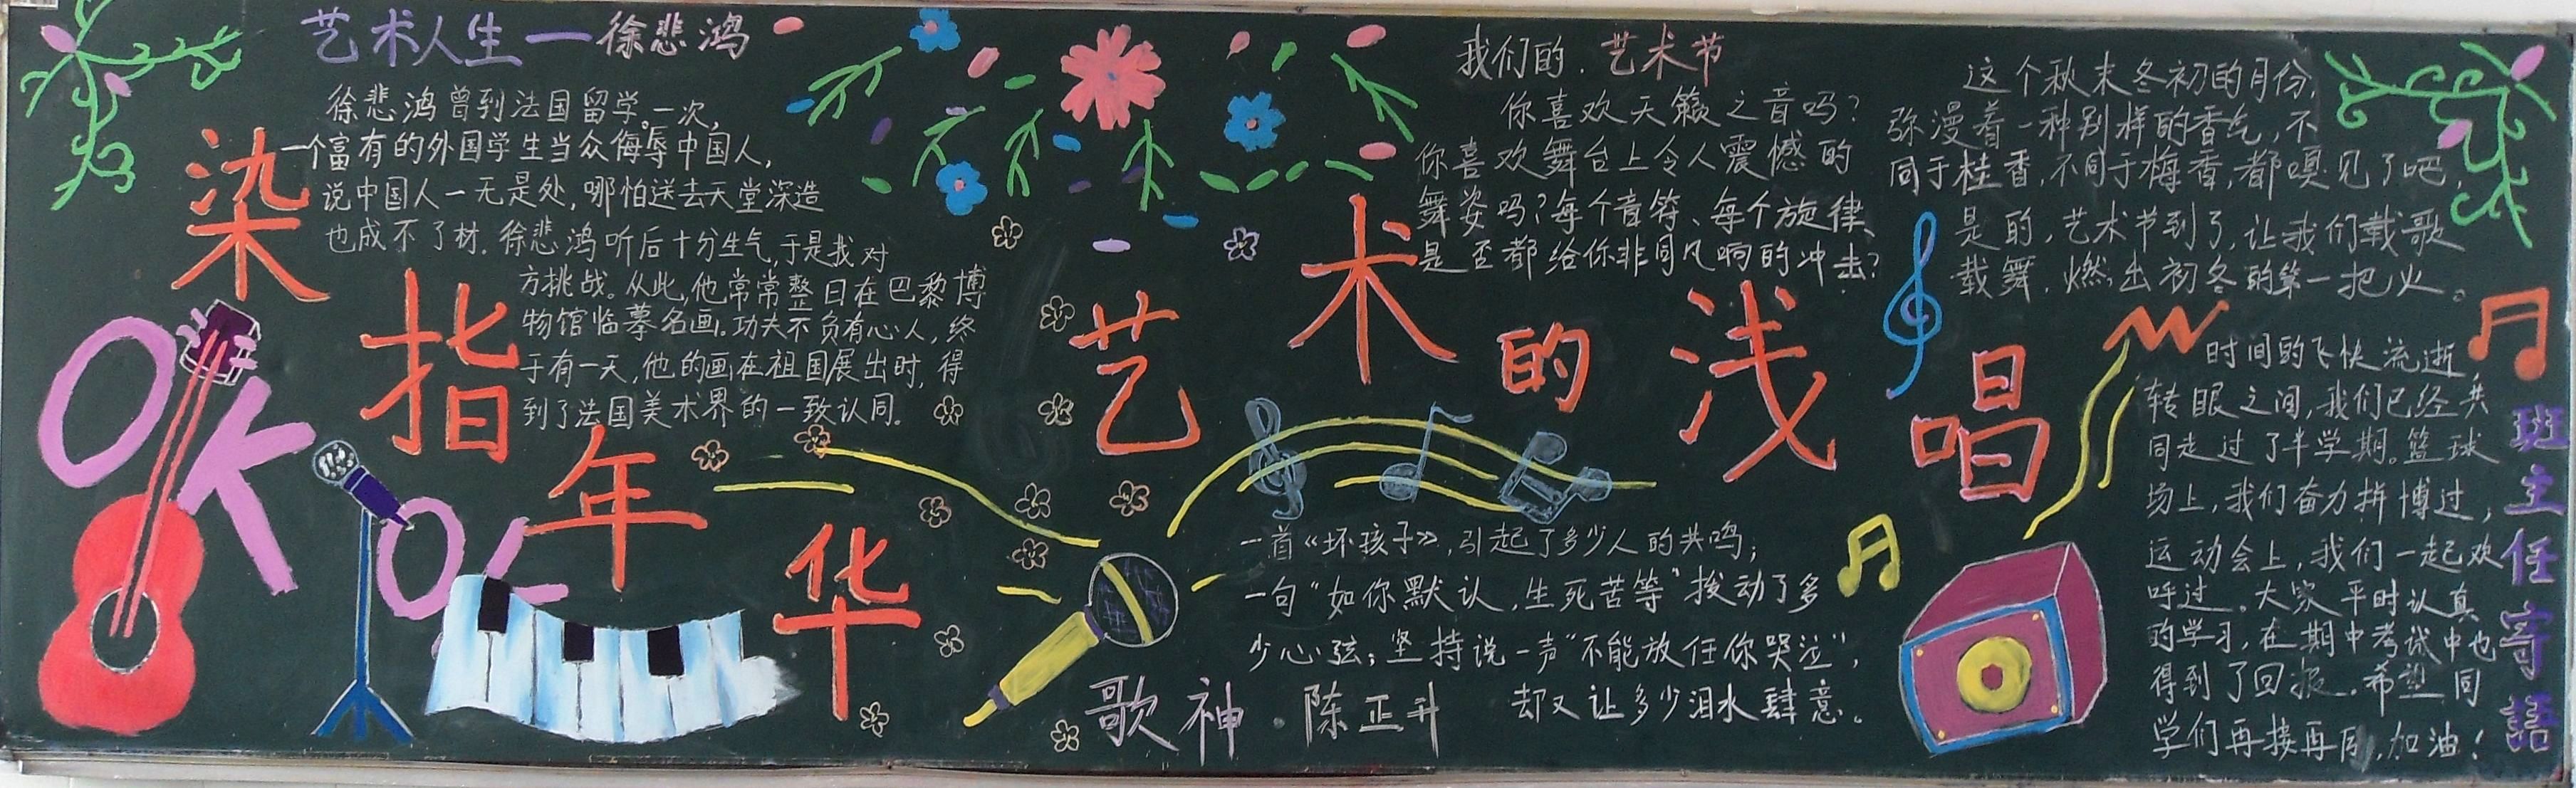 艺术人生一徐悲鸿
徐悲鸿曾到法国留学。一次,
一个富有的外国学生当众侮辱中国人,
说中国人一无是处,哪怕送去天堂深造
也成不了材.徐悲鸿听后十分生气,于是找对
方挑战。从此,他常常整日在巴黎博
物馆临摹名画。功夫不负有心人,终
于有一天,他的画在祖国展出时,得
到了法国美术界的一致认同。
染指年华
艺术的浅唱
OK
OK
我们的.艺术节
你喜欢天籁之音吗?
你喜欢舞台上令人震憾的
舞姿吗?每个音符、每个旋律、
是否都给你非同凡响的冲击?
这个秋末冬初的月份,
弥漫着一种别样的香气,不
同于桂香,不同于梅香,都嗅见了吧,
是的,艺术节到了,让我们载歌
载舞.燃出初冬的第一把火。
一首《坏孩子》,引起了多少人的共鸣;
一句“如你默认,生死苦等”拨动了多
少心弦;坚持说一声“不能放任你哭泣”,
却又让多少泪水肆意。
歌神·陈正升
时间的飞快流逝,
转眼之间,我们已经共
同走过了半学期。篮球
场上,我们奋力拼博过,
运动会上,我们一起欢
呼过。大家平时认真
的学习,在期中考试中也
得到了回报.希望同
学们再接再厉,加油!
班主任寄語